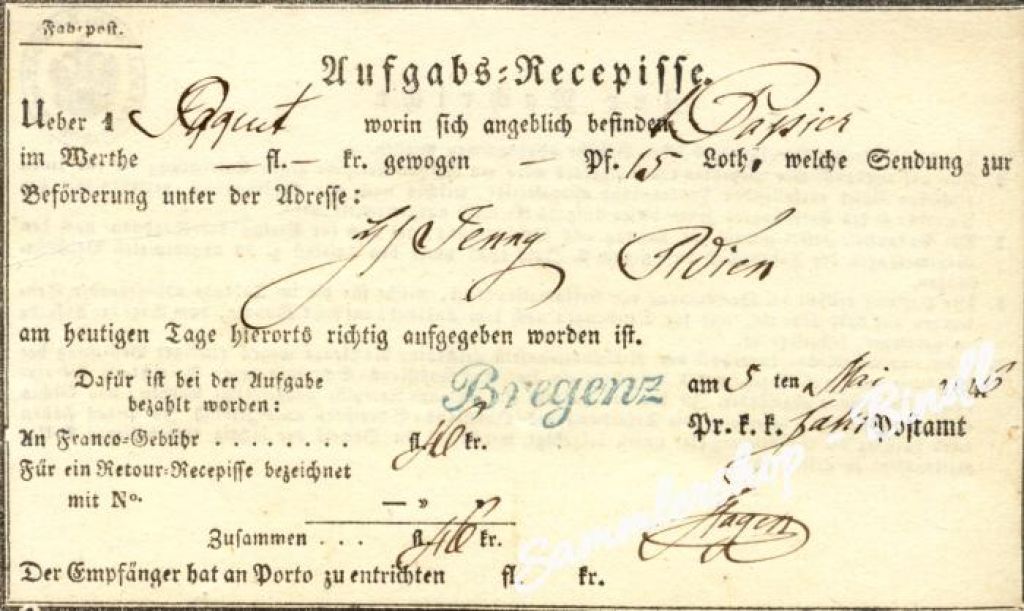 Fahrpost.
Aufgabs-Recepisse.
Ueber 1 Paquet worin sich angeblich befinden Papier
im Werthe — fl. — kr. gewogen — Pf. 15 Loth, welche Sendung zur
Beförderung unter der Adresse:
Jenny Wien
am heutigen Tage hierorts richtig aufgegeben worden ist.
Dafür ist bei der Aufgabe
bezahlt worden:
Bregenz am 5 ten Mai
An Franco-Gebühr . . . . . . . fl. 46 kr.
Pr. k. k. Fahr Postamt
Für ein Retour-Recepisse bezeichnet
mit No. — " "
Zusammen . . . fl. 46 kr.
Hagen
Der Empfänger hat an Porto zu entrichten fl. kr.